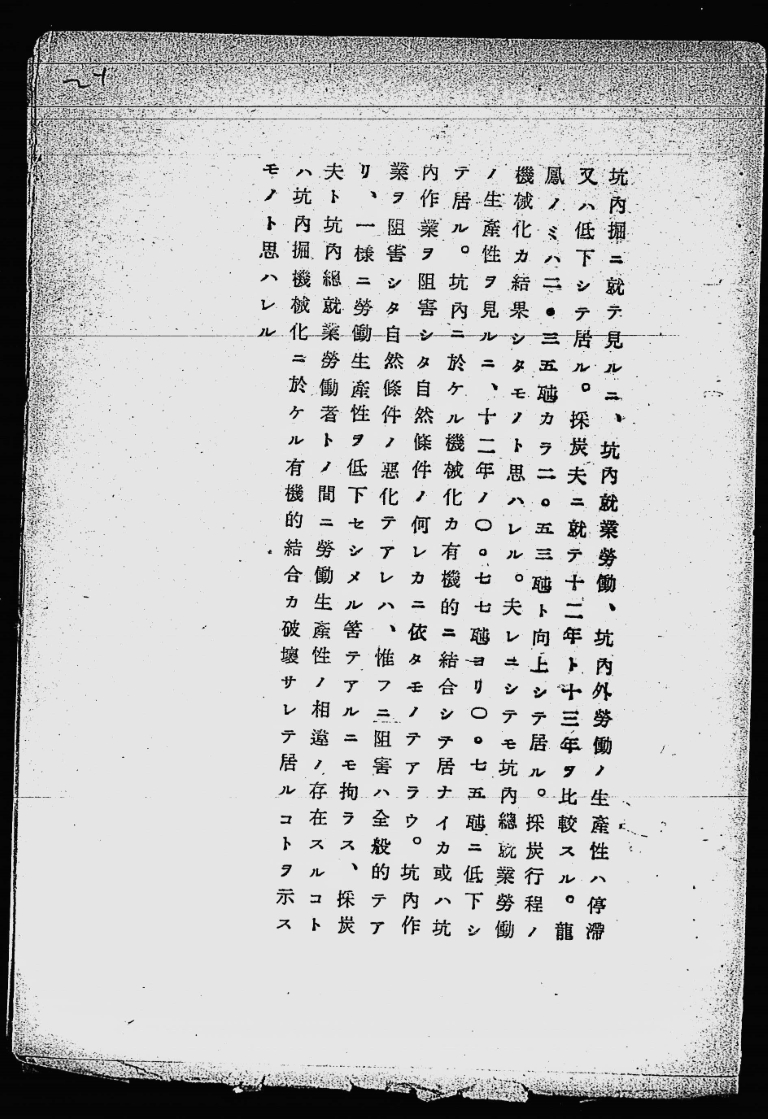 坑內掘ニ就テ見ルニ、坑內就業勞働、坑內外勞働ノ生產性ハ停滯
又ハ低下シテ居ル。採炭夫ニ就テ十二年ト十三年ヲ比較スル。龍
鳳ノミハ二・三五瓲カラ二。五三瓲ト向上シテ居ル。採炭行程ノ
機械化カ結果シタモノト思ハレル。夫レニシテモ坑內總就業勞働
ノ生產性ヲ見ルニ、十二年ノ〇。七七瓲ヨリ〇。七五瓲ニ低下シ
テ居ル。坑內ニ於ケル機械化カ有機的ニ結合シテ居ナイカ或ハ坑
內作業ヲ阻害シタ自然條件ノ何レカニ依タモノテアラウ。坑內作
業ヲ阻害シタ自然條件ノ惡化テアレハ、惟フニ阻害ハ全般的テア
リ、一樣ニ勞働生產性ヲ低下セシメル筈テアルニモ拘ラス、採炭
夫ト坑內總就業勞働者トノ間ニ勞働生產性ノ相違ノ存在スルコト
ハ坑內掘機械化ニ於ケル有機的結合カ破壞サレテ居ルコトヲ示ス
モノト思ハレル